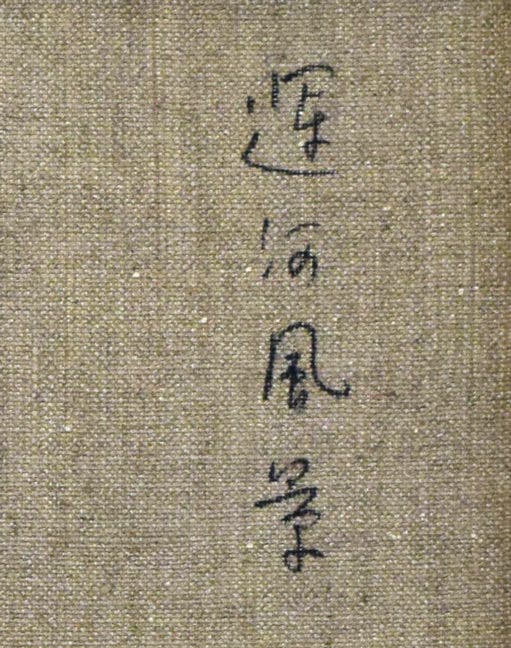 運河風景